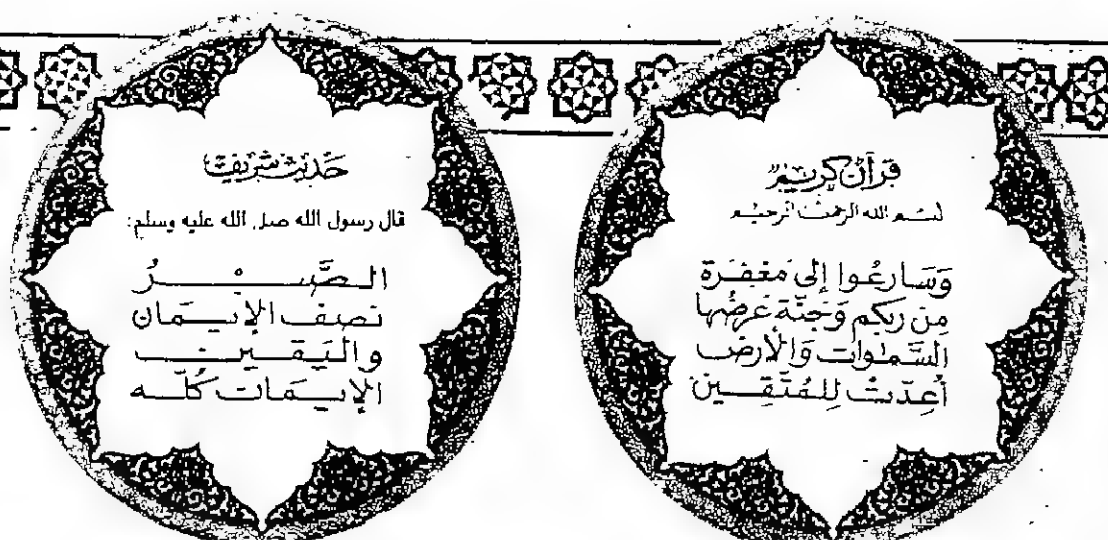 قرآن كريم
بسم الله الرحمن الرحيم
وَسَارعُوا إلى مَغفِرَة
مِن ربكم وَجَنّة عَرضُها
السَّمٰوات وَالأرض
أعِدّتْ لِلمُتّقِين
حَديث شريف
قال رسول الله صلى الله عليه وسلم:
الصَّبْرُ
نصف الإيمان
واليَقين
الإيمان كُلّه